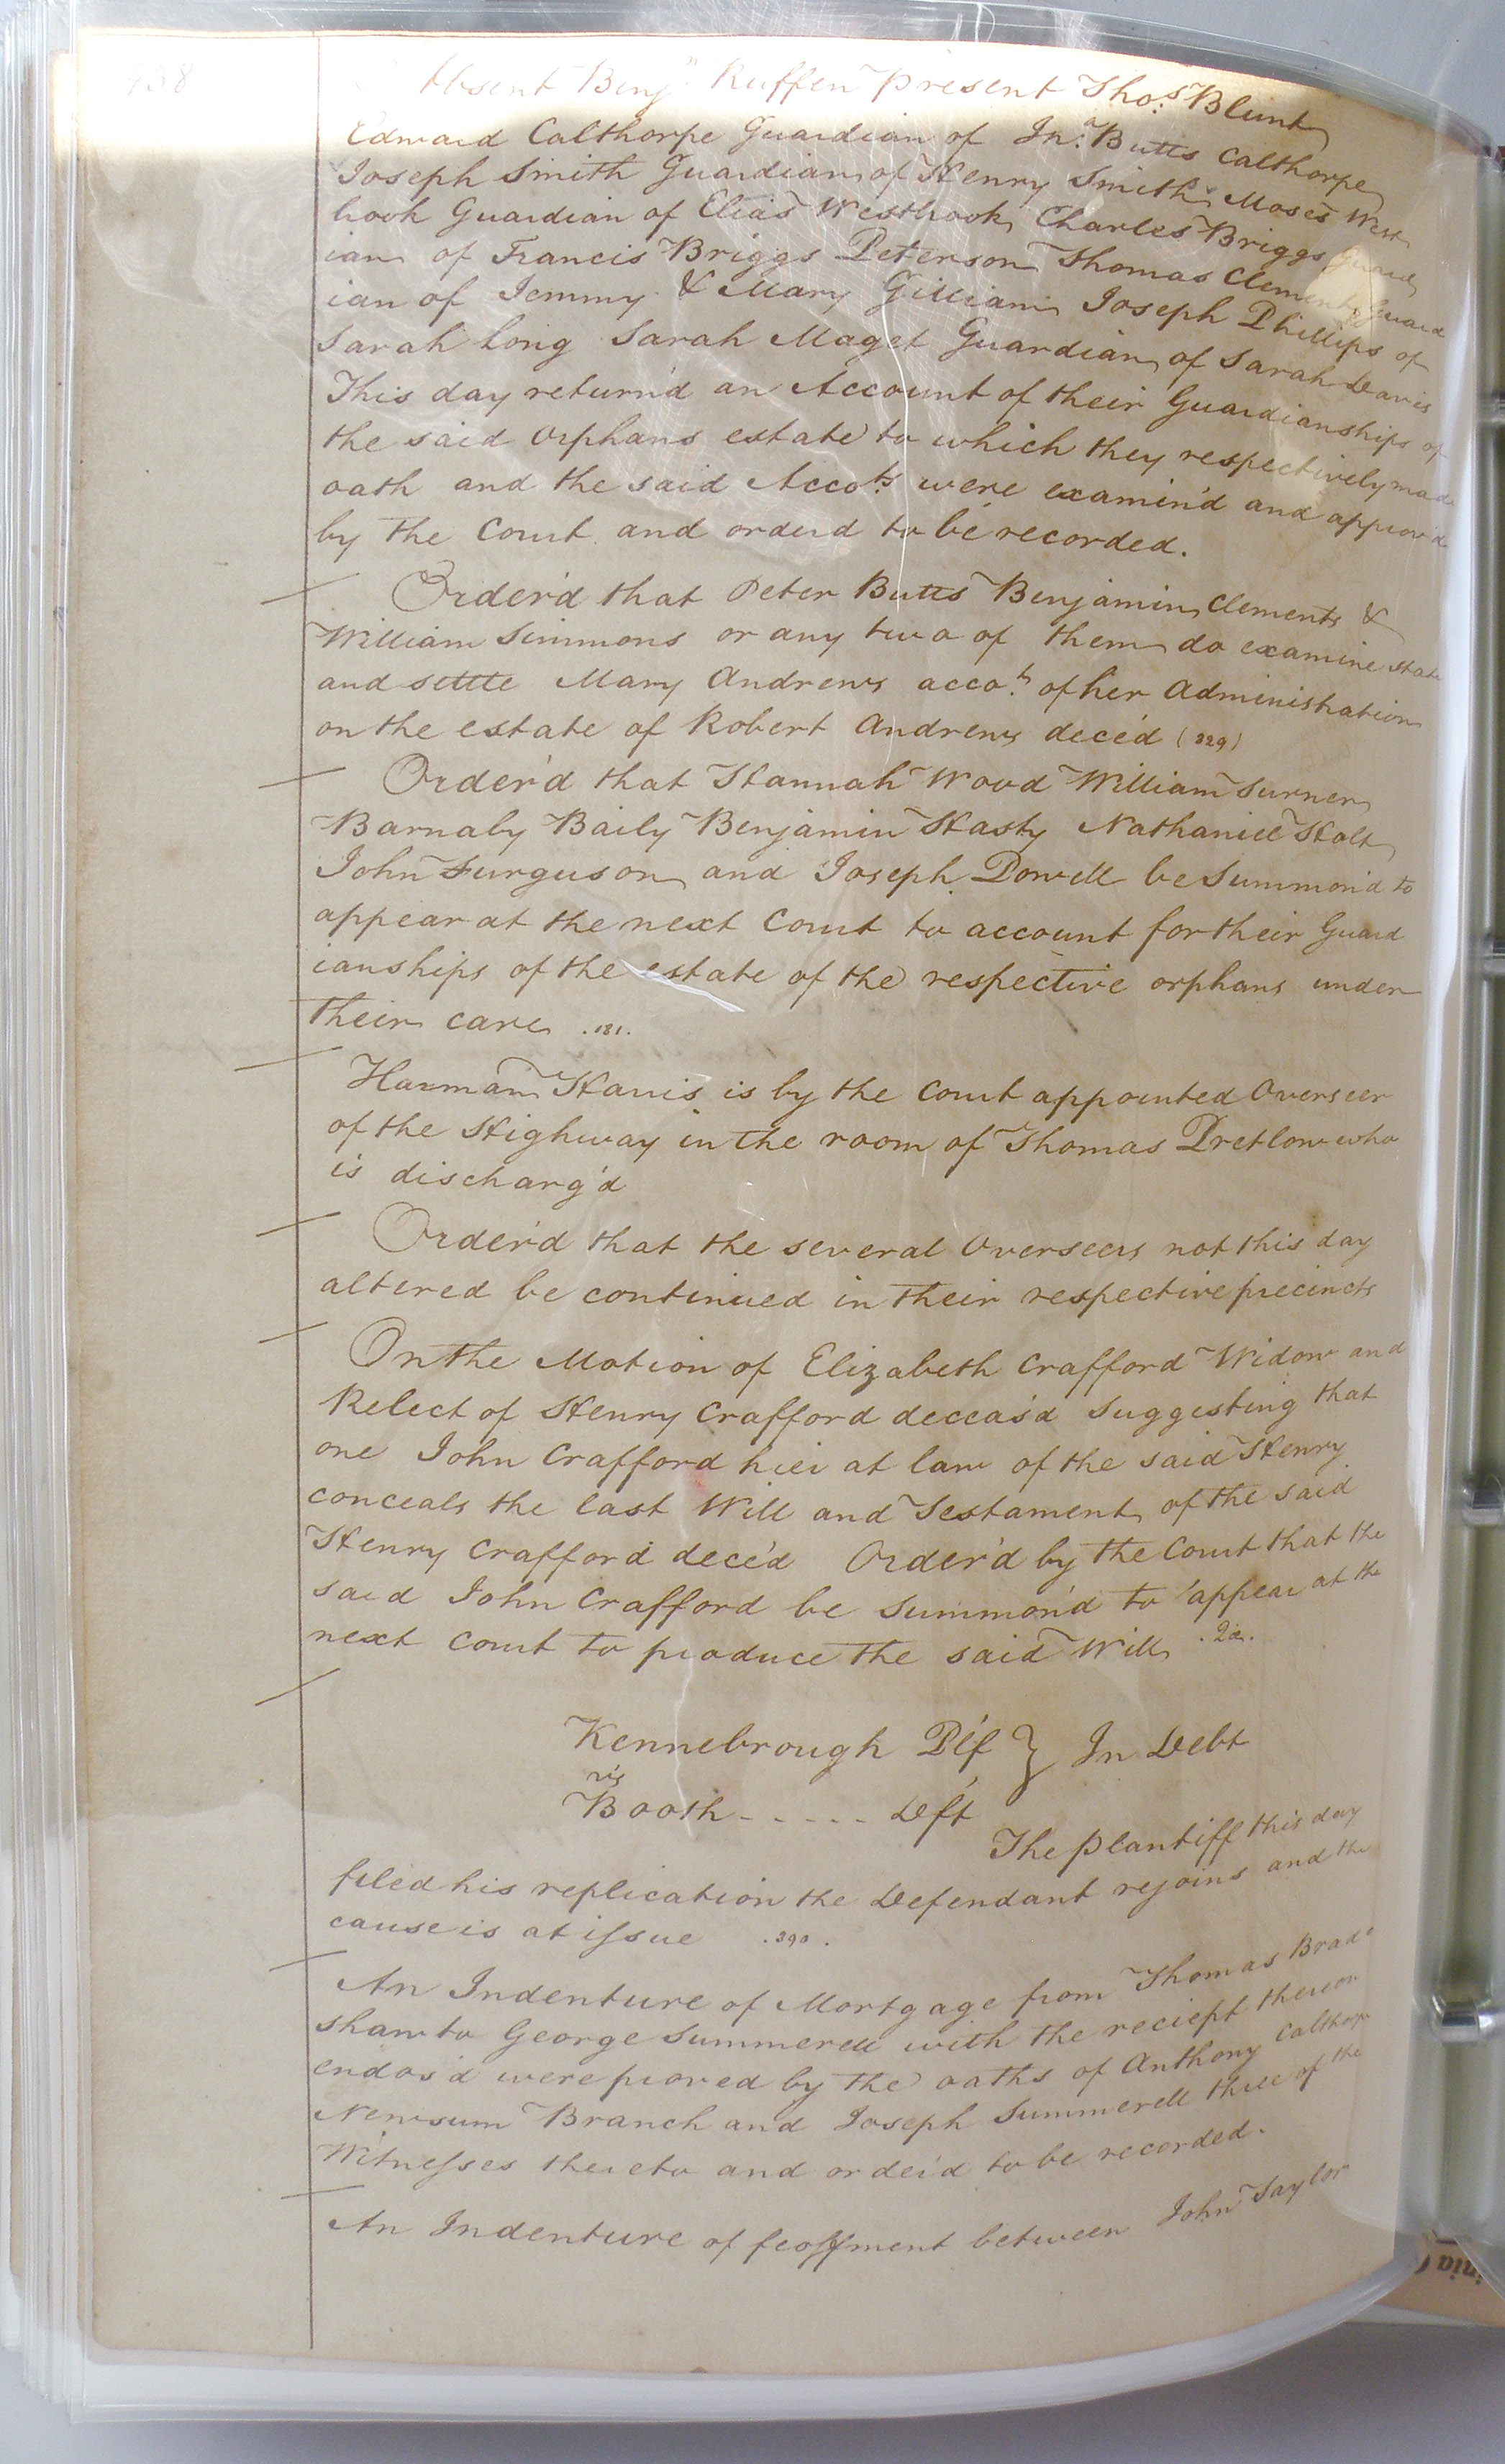 438
Absent Benjn Ruffen present Thos. Blunt
Edward Calthorpe Guardian of Jno. Butts Calthorpe
Joseph Smith Guardian of Henry Smith Moses West
brook Guardian of Elias Westbrook Charles Briggs Guard
ian of Francis Briggs Peterson Thomas Clements Guard
ian of Jemmy & Mary Gilliam Joseph Phillips of
Sarah Long Sarah Maget Guardian of Sarah Davis
This day return'd an Account of their Guardianships of
the said Orphans estate to which they respectively made
oath and the said Accots. were examin'd and approv'd
by the Court and orderd to be recorded.
Order'd that Peter Butts Benjamin Clements &
William Simmons or any two of them do examine state
and settle Mary Andrews accots. of her Administration
on the estate of Robert Andrews decēd (329)
Order'd that Hannah Wood William Turner
Barnaby Baily Benjamin Hasty Nathaniel Holt
John Furguson and Joseph Powell be Summon'd to
appear at the next Court to account for their Guard
ianships of the estate of the respective orphans under
their care .181.
Harman Harris is by the Court appointed Overseer
of the Highway in the room of Thomas Pretlow who
is discharg'd
Order'd that the several Overseers not this day
altered be continued in their respective precincts
On the Motion of Elizabeth Crafford Widow and
Relect of Henry Crafford deceas'd Suggesting that
one John Crafford hier at law of the said Henry
conceals the last Will and Testament of the said
Henry Crafford decēd Order'd by the Court that the
said John Crafford be Summon'd to appear at the
next Court to produce the said Will
Kennebrough Plf } In Debt
vs
Booth - - - - - Deft
The plantiff this day
filed his replication the Defendant rejoins and the
cause is at issue .390.
An Indenture of Mortgage from Thomas Brad
shaw to George Summerell with the reciept thereon
endos'd were proved by the oaths of Anthony Calthorp
Newsum Branch and Joseph Summerell three of the
Witnesses thereto and order'd to be recorded.
An Indenture of feoffment between John Taylor